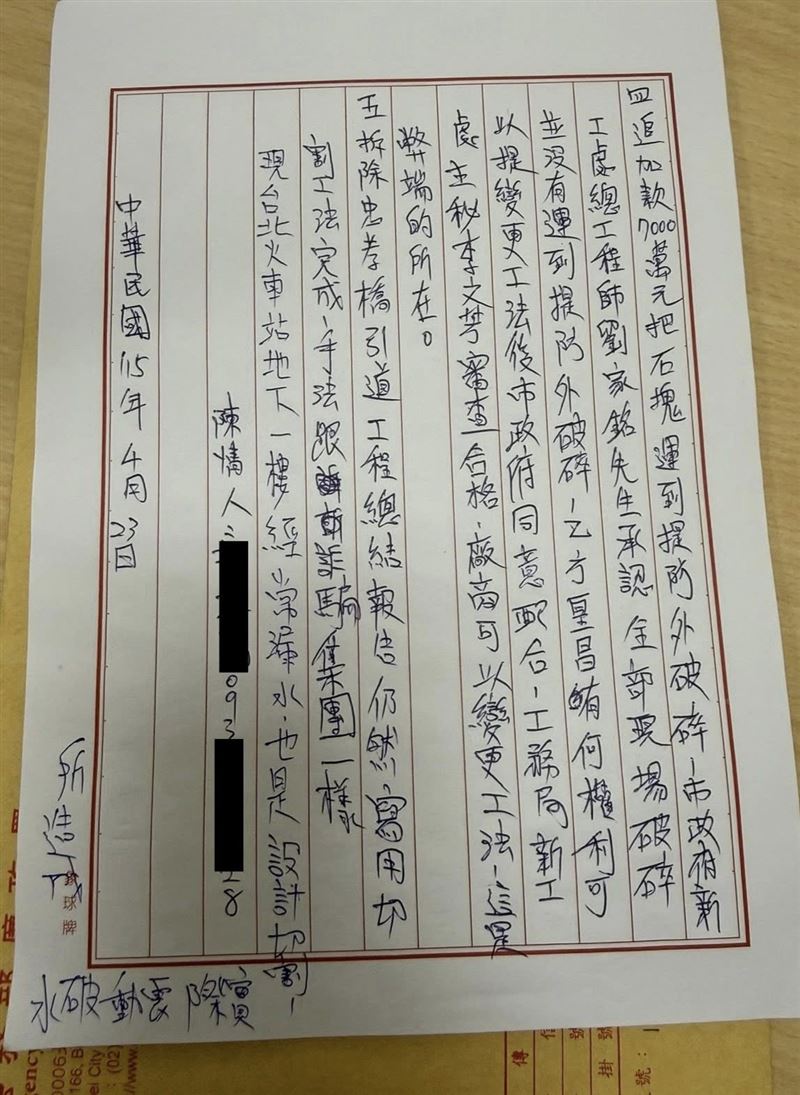 四追加款7000萬元把石塊運到提防外破碎、市政府新
工處總工程師劉家銘先生承認全部現場破碎
並沒有運到提防外破碎、乙方皇昌有何權利可
以提變更工法後市政府同意配合、工務局新工
處主秘李文芳審查合格、廠商可以變更工法、這是
弊端的所在。
五拆除忠孝橋引道工程總結報告仍然寫用切
割工法完成、手法跟詐騙集團一樣
現台北火車站地下一樓經常漏水、也是設計切割、
陳情人
093
28
中華民國115年4月23日
所造成
水破動震
球牌
傳
信
號
掛
號：
00063
166, B
ei City
: (02)
gency